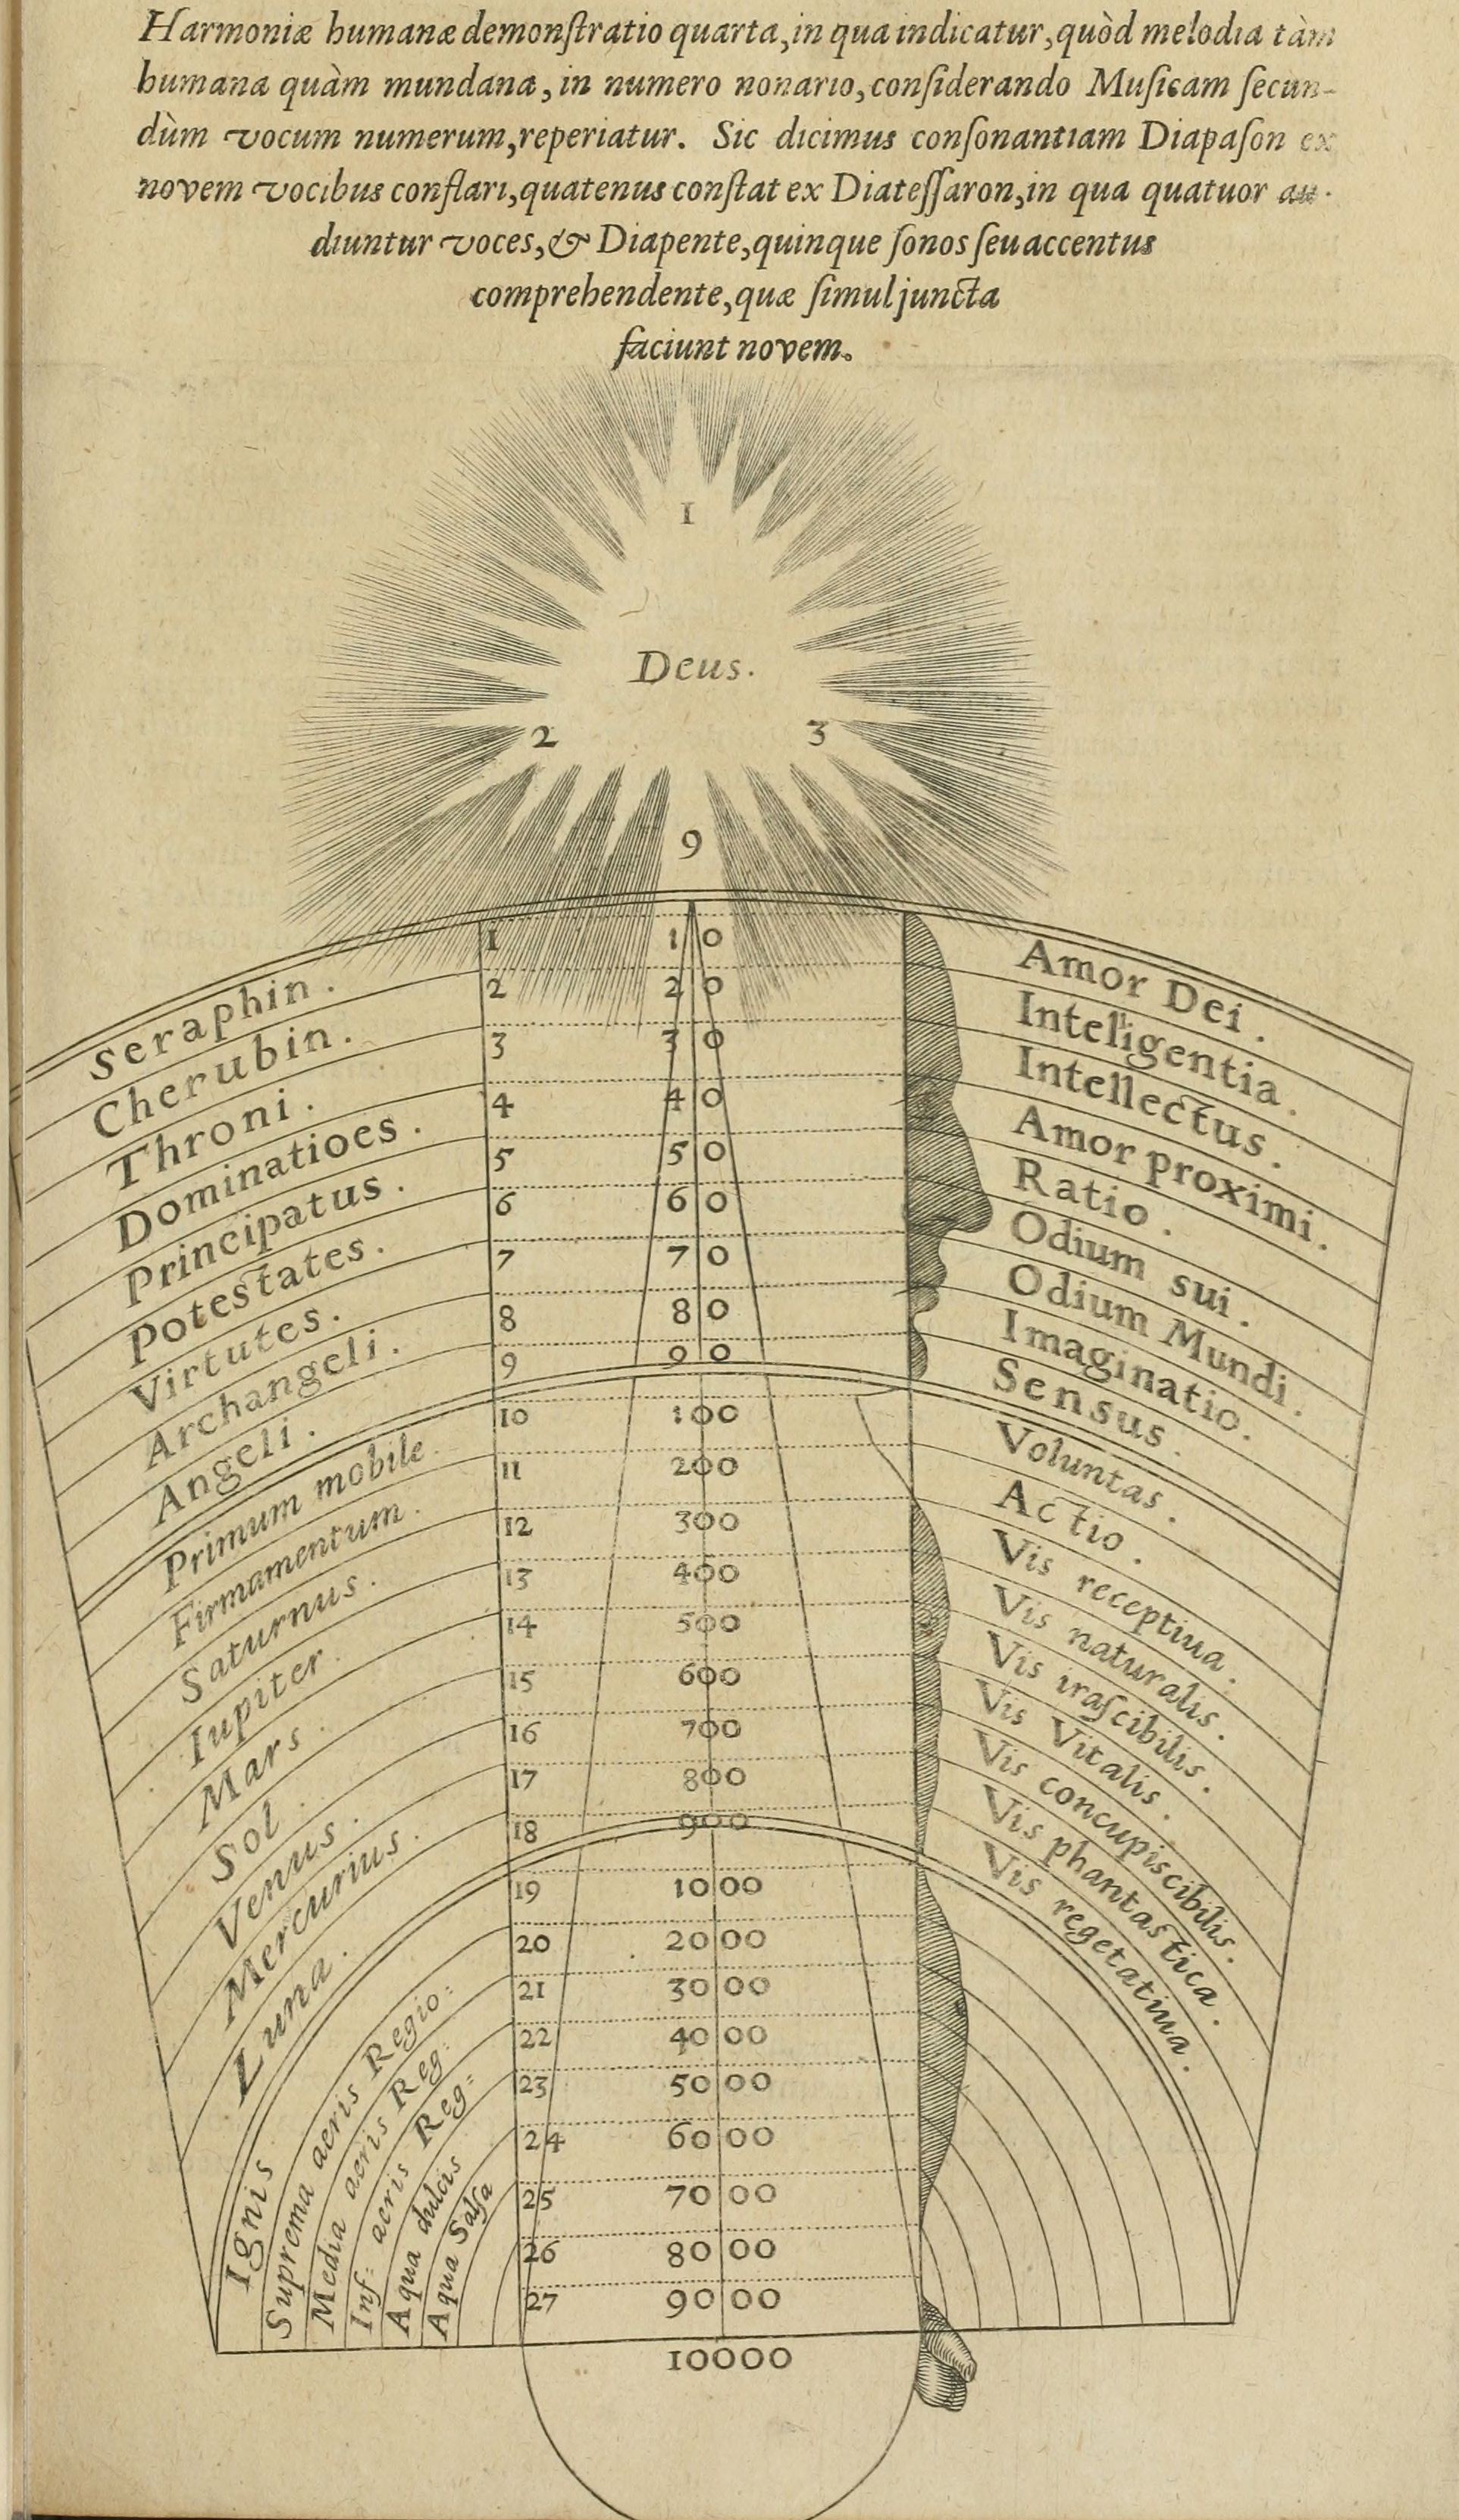 Harmoniæ humanæ demonſtratio quarta, in qua indicatur, quòd melodia tàm
humana quàm mundana, in numero nonario, conſiderando Muſicam ſecun-
dùm vocum numerum, reperiatur. Sic dicimus conſonantiam Diapaſon ex
novem vocibus conflari, quatenus conſtat ex Diateſſaron, in qua quatuor au-
diuntur voces, & Diapente, quinque ſonos ſeu accentus
comprehendente, quæ ſimul juncta
faciunt novem.
1
Deus.
2 3
9
Seraphin. 1 10 Amor Dei.
Cherubin. 2 20 Intelligentia.
Throni. 3 30 Intellectus.
Dominatioes. 4 40 Amor proximi.
Principatus. 5 50 Ratio.
Potestates. 6 60 Odium sui.
Virtutes. 7 70 Odium Mundi.
Archangeli. 8 80 Imaginatio.
Angeli. 9 90 Sensus.
Primum mobile. 10 100 Voluntas.
Firmamentum. 11 200 Actio.
Saturnus. 12 300 Vis receptiua.
Iupiter. 13 400 Vis naturalis.
Mars. 14 500 Vis iraſcibilis.
Sol. 15 600 Vis Vitalis.
Venus. 16 700 Vis concupiscibilis.
Mercurius. 17 800 Vis phantastica.
Luna. 18 900 Vis regetatiua.
Ignis 19 1000
Suprema aeris Regio: 20 2000
Media aeris Reg: 21 3000
Inf: aeris Reg: 22 4000
Aqua dulcis 23 5000
Aqua Salſa 24 6000
25 7000
26 8000
27 9000
10000